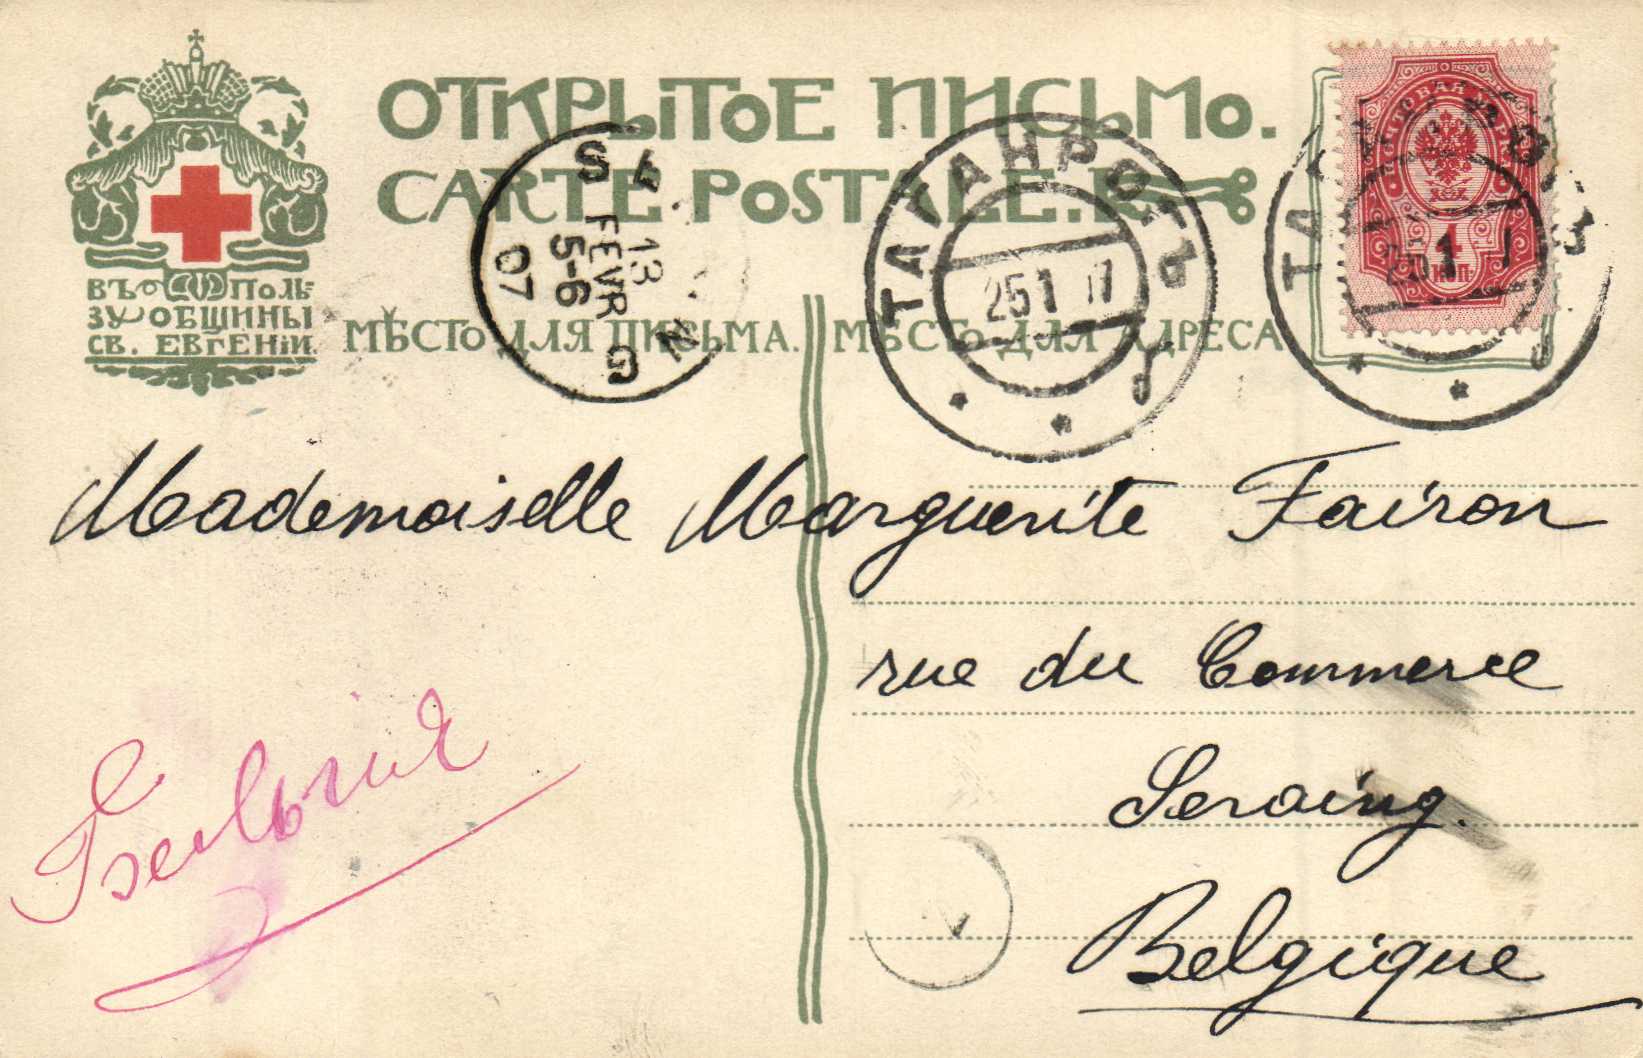 ОТКРЫТОЕ ПИСЬМО.
CARTE POSTALE.
ВЪ ПОЛЬ-
ЗУ ОБЩИНЫ
СВ. ЕВГЕНІИ.
МѢСТО ДЛЯ ПИСЬМА. МѢСТО ДЛЯ АДРЕСА
SERAING
13
FEVR
5-6
07
ТАГАНРОГЪ
25 1 07
ПОЧТОВАЯ МАРКА
4
КОП.
ТАГАНРОГЪ
25 1 7
Mademoiselle Marguerite Fairon
rue du Commerce
Seraing.
Belgique